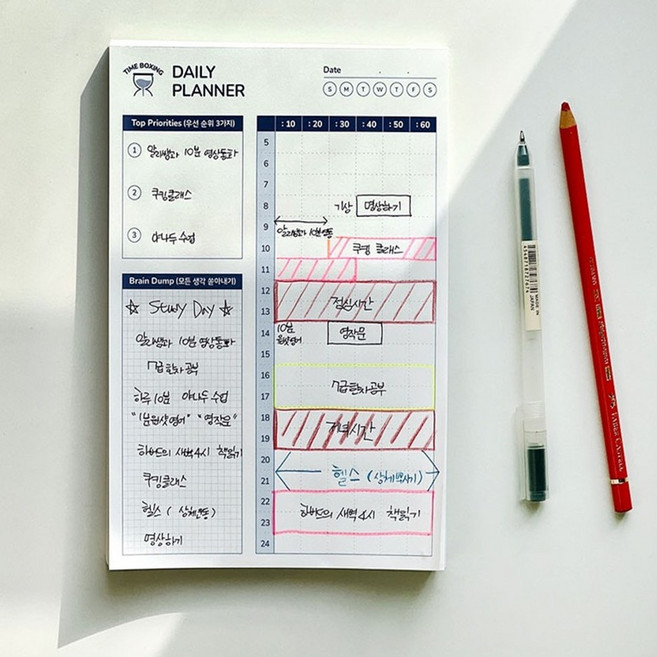 TIME BOXING
DAILY
PLANNER
Date . .
S M T W T F S
Top Priorities (우선 순위 3가지)
1 알리쌤과 10분 영상통화
2 쿠킹클래스
3 야나두 수업
Brain Dump (모든 생각 쏟아내기)
☆ STUDY DAY ☆
알리쌤과 10분 영상통화
7급 한자 공부
하루 10분 야나두 수업
"1분 원샷영어" "영작문"
하버드의 새벽 4시 책읽기
쿠킹클래스
헬스 ( 상체운동)
명상하기
:10 :20 :30 :40 :50 :60
5
6
7
8 기상 명상하기
9 알리쌤과
10 쿠킹 클래스
11
12
13 점심시간
14 10분 원샷영어 영작문
15
16
17 7급 한자 공부
18
19 저녁시간
20
21 헬스 (상체
22
23 하버드의 새벽 4시 책읽기
24
MADE IN JAPAN